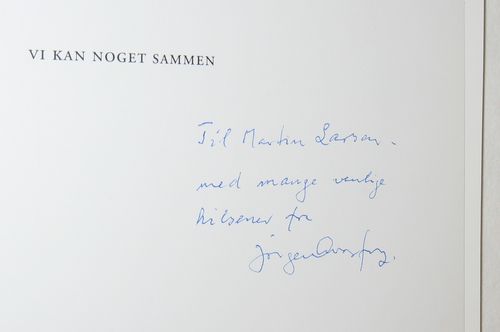 VI KAN NOGET SAMMEN
Til Martin Larsen.
med mange venlige
hilsener fra
Jörgen